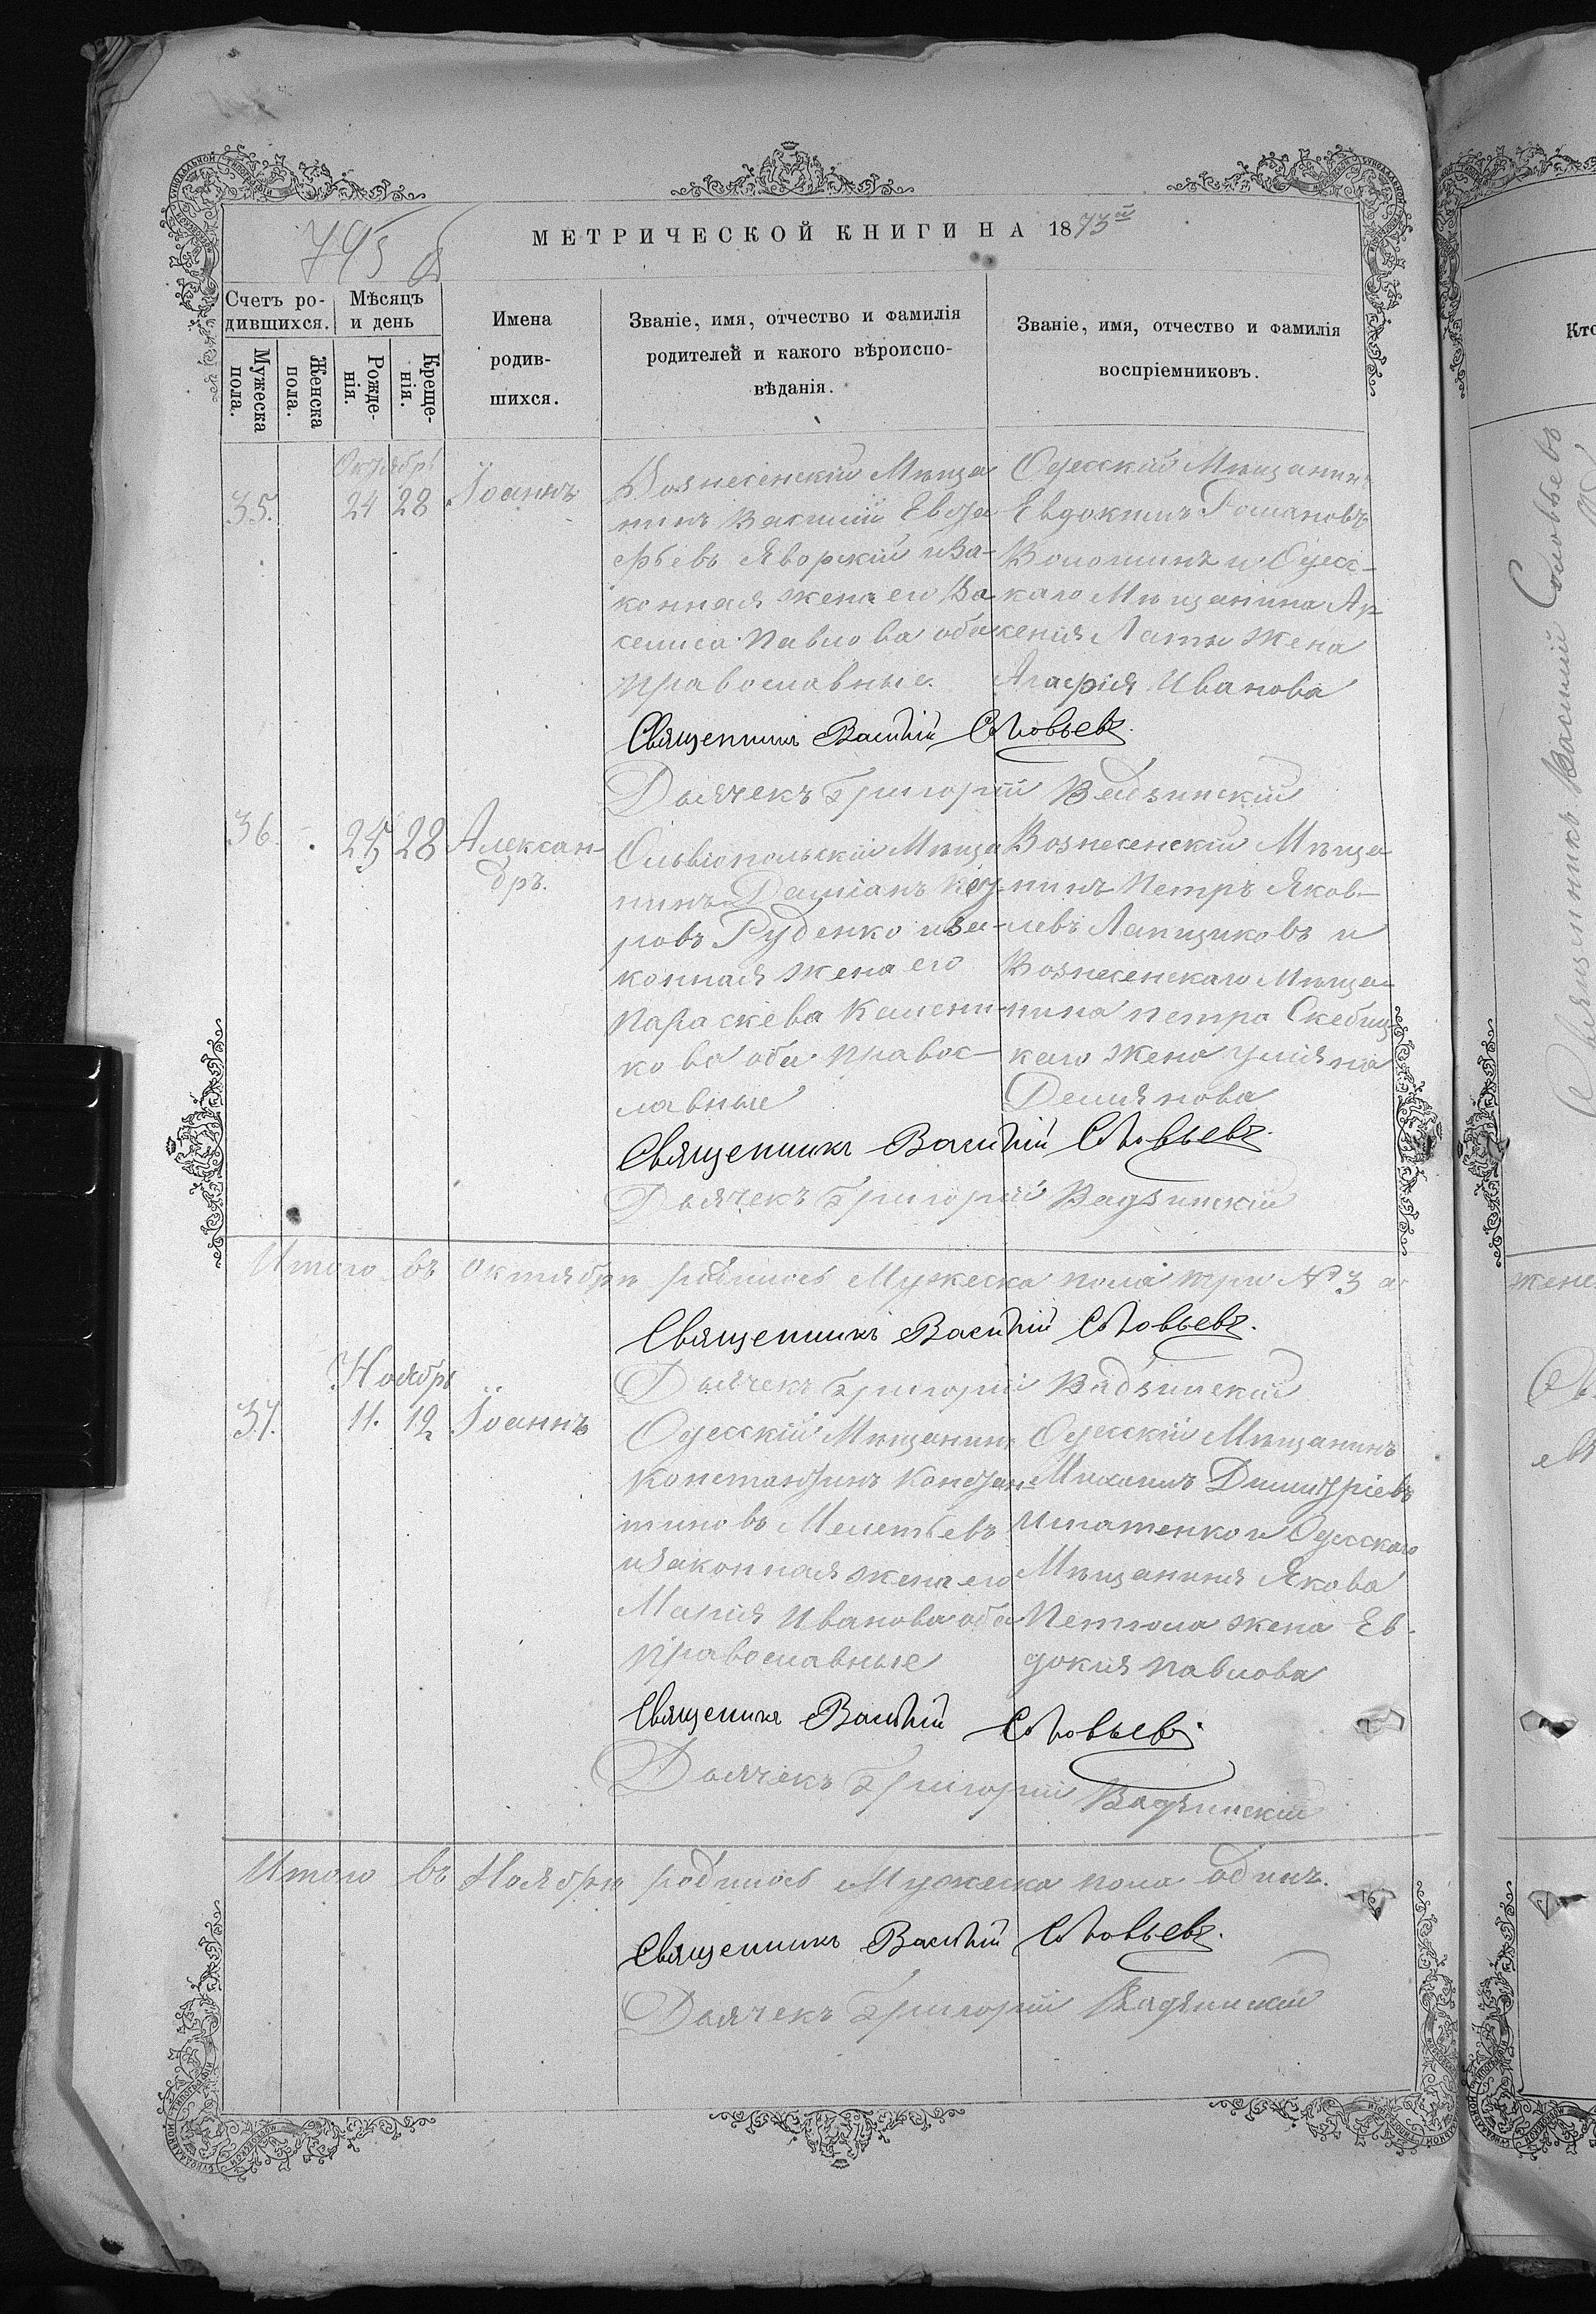 795 об
МЕТРИЧЕСКОЙ КНИГИ НА 1873й
Счетъ ро-
дившихся.
Мѣсяцъ
и день
Мужеска
пола.
Женска
пола.
Рожде-
нія.
Креще-
нія.
Имена
родив-
шихся.
Званіе, имя, отчество и фамилія
родителей и какого вѣроиспо-
вѣданія.
Званіе, имя, отчество и фамилія
воспріемниковъ.
Октябрь
35. 24 28 Іоаннъ
Вознесенскій Мѣща
нинъ Василій Евста
фьевъ Яворскій и За-
конная жена его Ва
селиса Павлова оба
православные.
Одесскій Мѣщанинъ
Евдокимъ Романовъ
Волошинъ и Одесс-
каго Мѣщанина Ар
сенія Лапы жена
Агафія Иванова
Священникъ Василій Соловьевъ.
Дьячекъ Григорій
36. 25 28 Алексан-
дръ.
Ольвіопольскій Мѣща
нинъ Даміанъ
ровъ Руденко и За-
конная жена его
Параскева
кова оба правос-
лавные
Вознесенскій Мѣща
нинъ Петръ Яков-
левъ Лапщиковъ и
Вознесенскаго Мѣща-
нина Петра
каго жена Уліяна
Демянова
Священникъ Василій Соловьевъ.
Дьячекъ Григорій
Итого въ Октябрѣ родилось Мужеска пола три № 3
Священникъ Василій Соловьевъ.
Дьячекъ Григорій
Ноябрь
37. 11. 12 Іоаннъ
Одесскій Мѣщанинъ
Константинъ Констан-
тиновъ Мелетьевъ
и Законная жена его
Марія Иванова оба
православные
Одесскій Мѣщанинъ
Михаилъ Димитріевъ
Игнатенко и Одесскаго
Мѣщанина Якова
жена Ев-
докия Павлова
Священникъ Василій Соловьевъ
Дьячекъ Григорій
Итого въ Ноябрѣ родилось Мужеска пола одинъ.
Священникъ Василій Соловьевъ.
Дьячекъ Григорій
Кто
Священникъ Василій Соловьевъ
жене